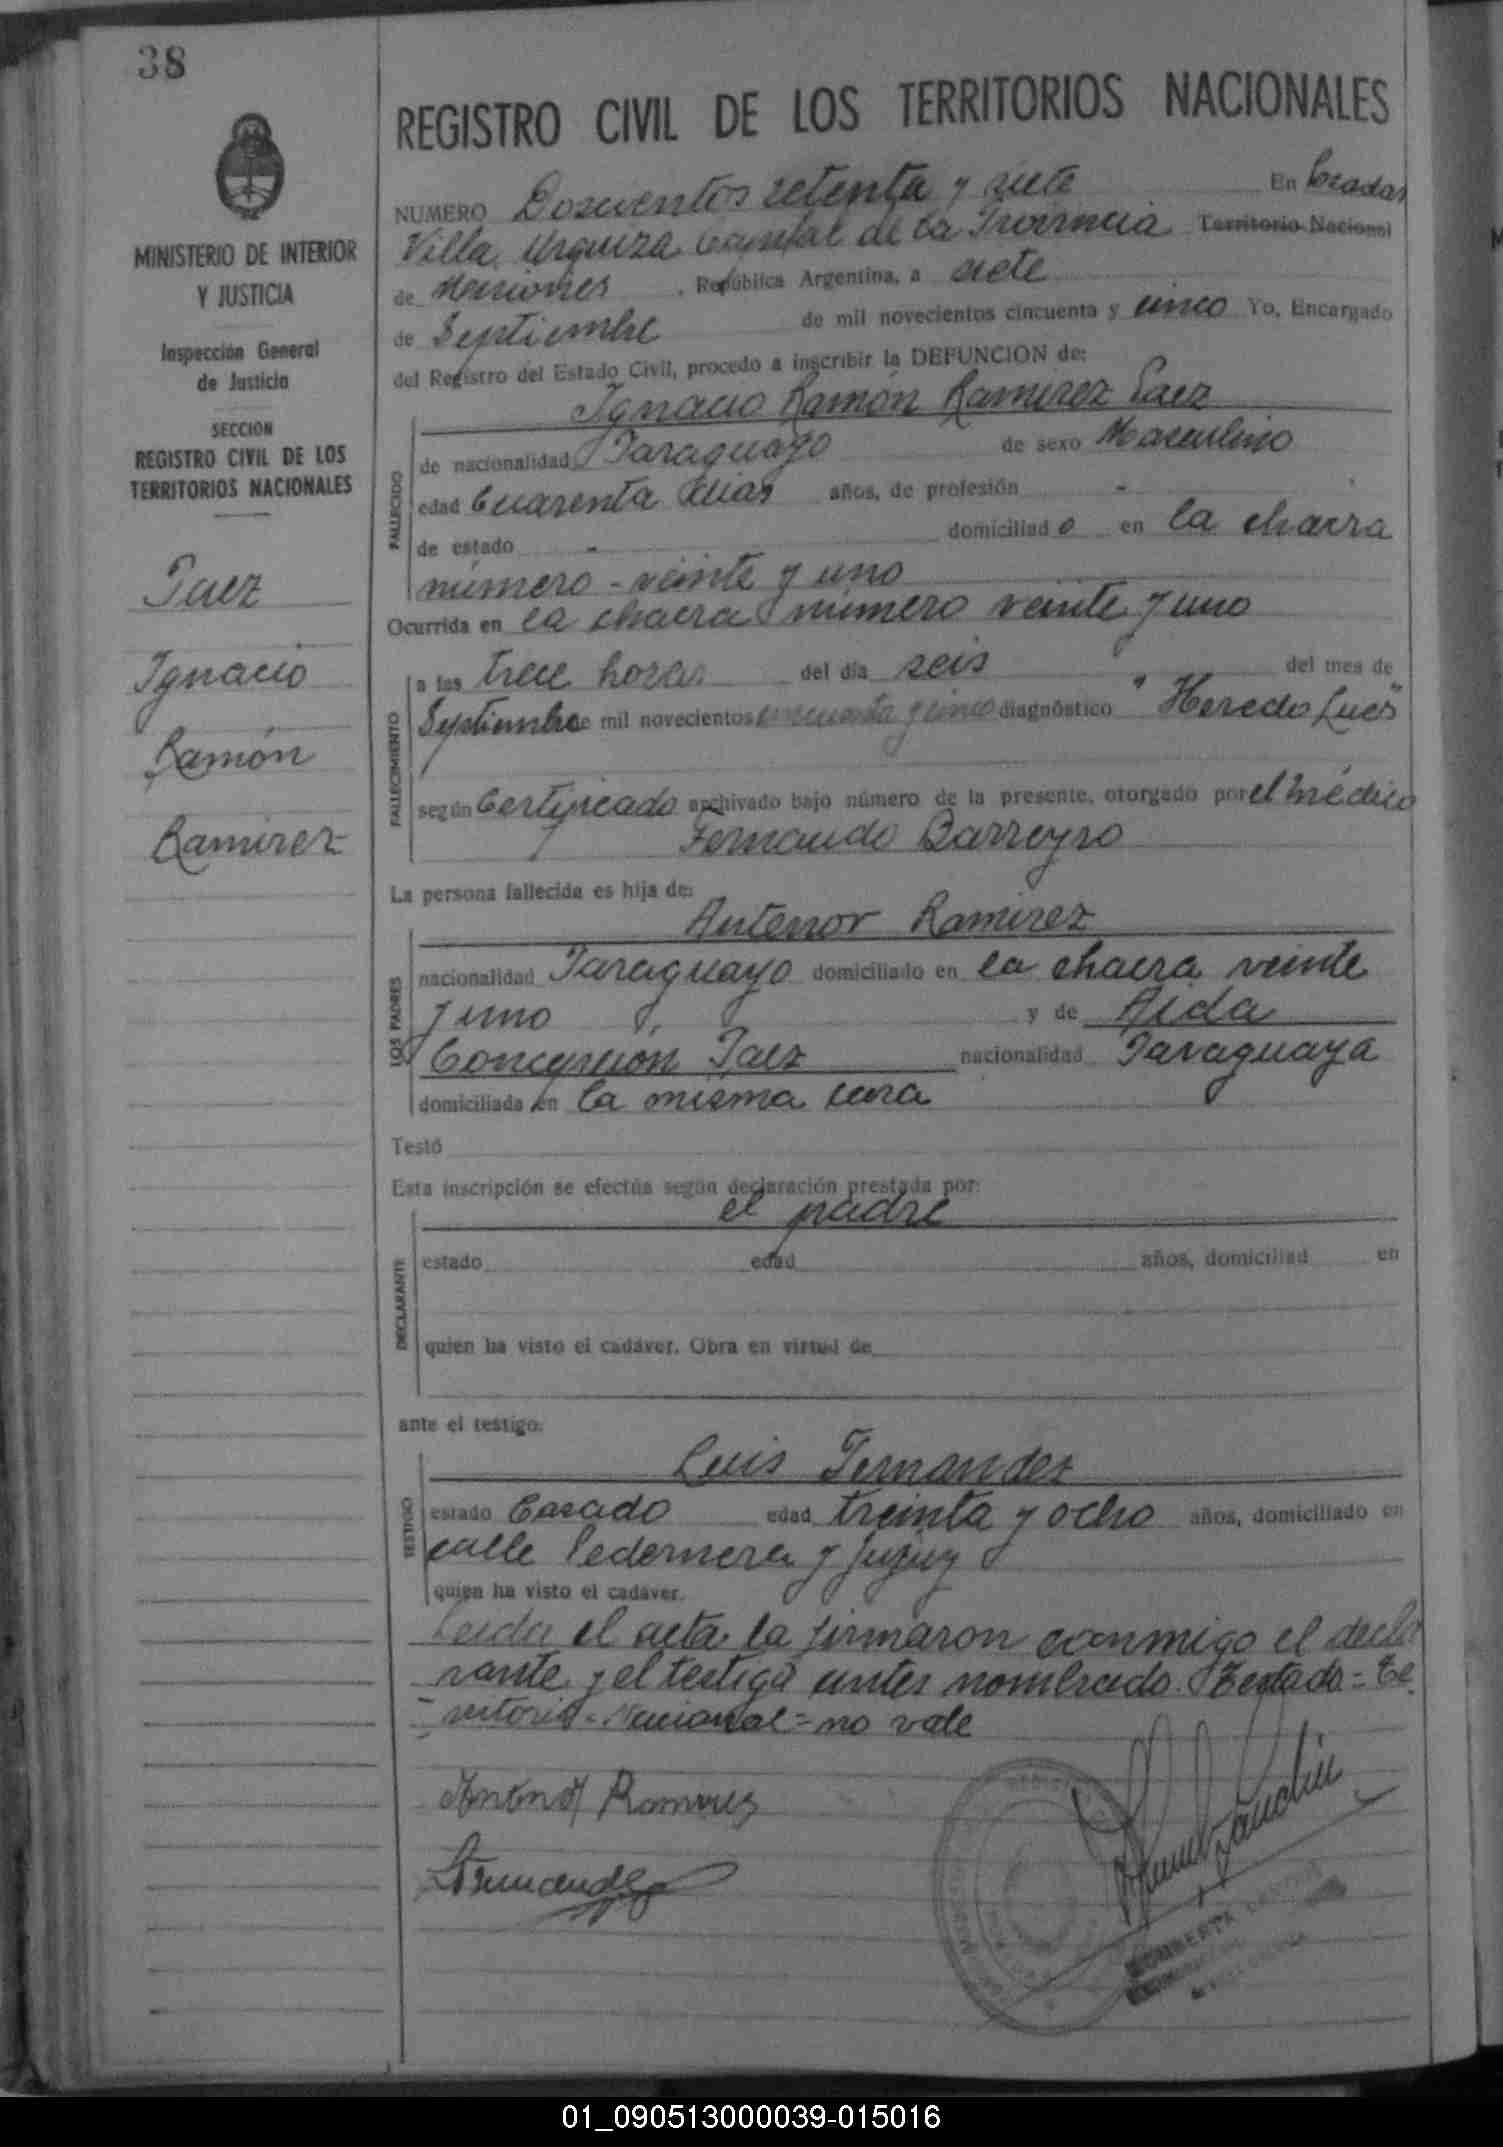 38
MINISTERIO DE INTERIOR
Y JUSTICIA
Inspección General
de Justicia
SECCION
REGISTRO CIVIL DE LOS
TERRITORIOS NACIONALES
Paez
Ignacio
Ramón
Ramirez
REGISTRO CIVIL DE LOS TERRITORIOS NACIONALES
NUMERO Doscientos setenta y siete En Posadas
Villa Urquiza Capital de la Provincia Territorio Nacional
de Misiones, República Argentina, a siete
de Septiembre de mil novecientos cincuenta y cinco Yo, Encargado
del Registro del Estado Civil, procedo a inscribir la DEFUNCION de:
Ignacio Ramón Ramirez Paez
FALLECIDO
de nacionalidad Paraguayo de sexo Masculino
edad Cuarenta dias años, de profesión -
de estado - domiciliado en la chacra
número - veinte y uno
Ocurrida en la chacra número veinte y uno
FALLECIMIENTO
a las trece horas del día seis del mes de
Septiembre de mil novecientos cincuenta y cinco diagnóstico "Heredo Lues"
según Certificado archivado bajo número de la presente, otorgado por el médico
Fernando Barreyro
La persona fallecida es hija de:
Antenor Ramirez
LOS PADRES
nacionalidad Paraguayo domiciliado en la chacra veinte
y uno y de Aida
Concepción Paez nacionalidad Paraguaya
domiciliada en la misma
Testó
Esta inscripción se efectúa según declaración prestada por:
el padre
DECLARANTE
estado edad años, domiciliad en
quien ha visto el cadáver. Obra en virtud de
ante el testigo:
Luis Fernandez
TESTIGO
estado Casado edad treinta y ocho años, domiciliado en
calle Pedernera y Jujuy
quien ha visto el cadáver.
Leida el acta la firmaron conmigo el decla
rante y el testigo antes nombrado. Testado = Te
rritorio - Nacional = no vale
Antenor Ramirez
LFernandez
01_090513000039-015016